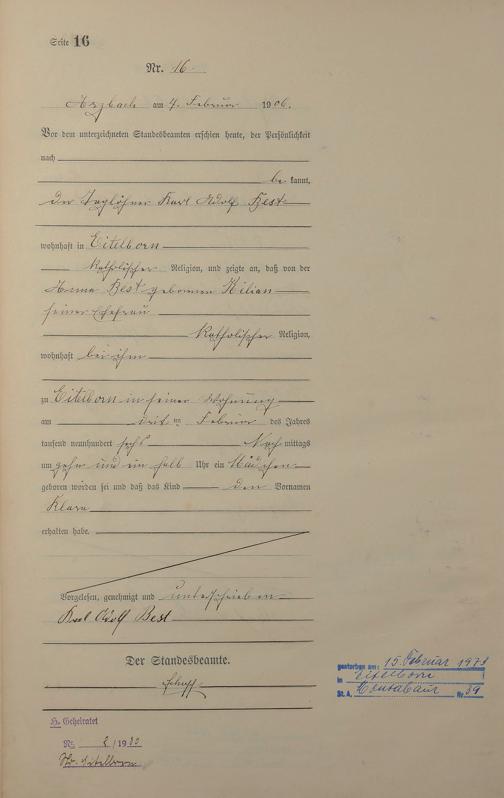 Seite 16
Nr. 16
Arzbach am 4. Februar 1906.
Vor dem unterzeichneten Standesbeamten erschien heute, der Persönlichkeit
nach
be kannt,
der Taglöhner Karl Adolf Best
wohnhaft in Eitelborn
katholischer Religion, und zeigte an, daß von der
Anna Best geborenen Kilian
seiner Ehefrau
katholischer Religion,
wohnhaft bei ihm
zu Eitelborn in seiner Wohnung
am drit ten Februar des Jahres
tausend neunhundert sechs Nach mittags
um zehn und ein halb Uhr ein Mädchen
geboren worden sei und daß das Kind den Vornamen
Klara
erhalten habe.
Vorgelesen, genehmigt und unterschrieben
Karl Adolf Best
Der Standesbeamte.
H. Geheiratet
Nr. 2/1933
St. Eitelborn
gestorben am: 15. Februar
in Eitelborn
St. A. Montabaur Nr. 39